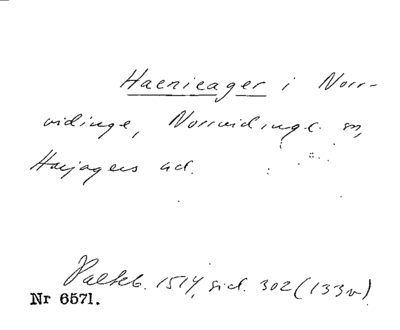 Haenieager i Norr-
vidinge, Norrvidinge sn,
Harjagers hd.
Palteb. 1514, sid. 302 (133v)
Nr 6571.